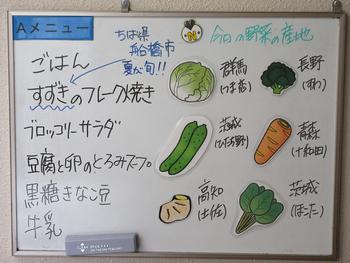 Aメニュー
ちば県
船橋市
夏が旬!!
ごはん
すずきのフレーク焼き
ブロッコリーサラダ
豆腐と卵のとろみスープ
黒糖きなこ豆
牛乳
N
今日の野菜の産地
群馬
(つま恋)
長野
茨城
(ひたち野)
青森
(十和田)
高知
(土佐)
茨城
(ほこた)